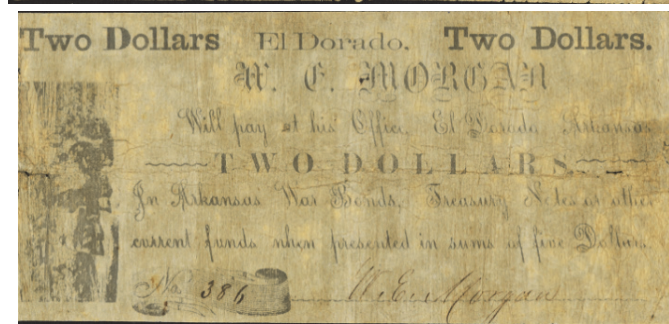 Two Dollars El Dorado. Two Dollars.
W. E. MORGAN
Will pay at his Office, El Dorado Arkansas
TWO DOLLARS
In Arkansas War Bonds, Treasury Notes or other
current funds when presented in sums of five Dollars.
No. 386 W. E. Morgan